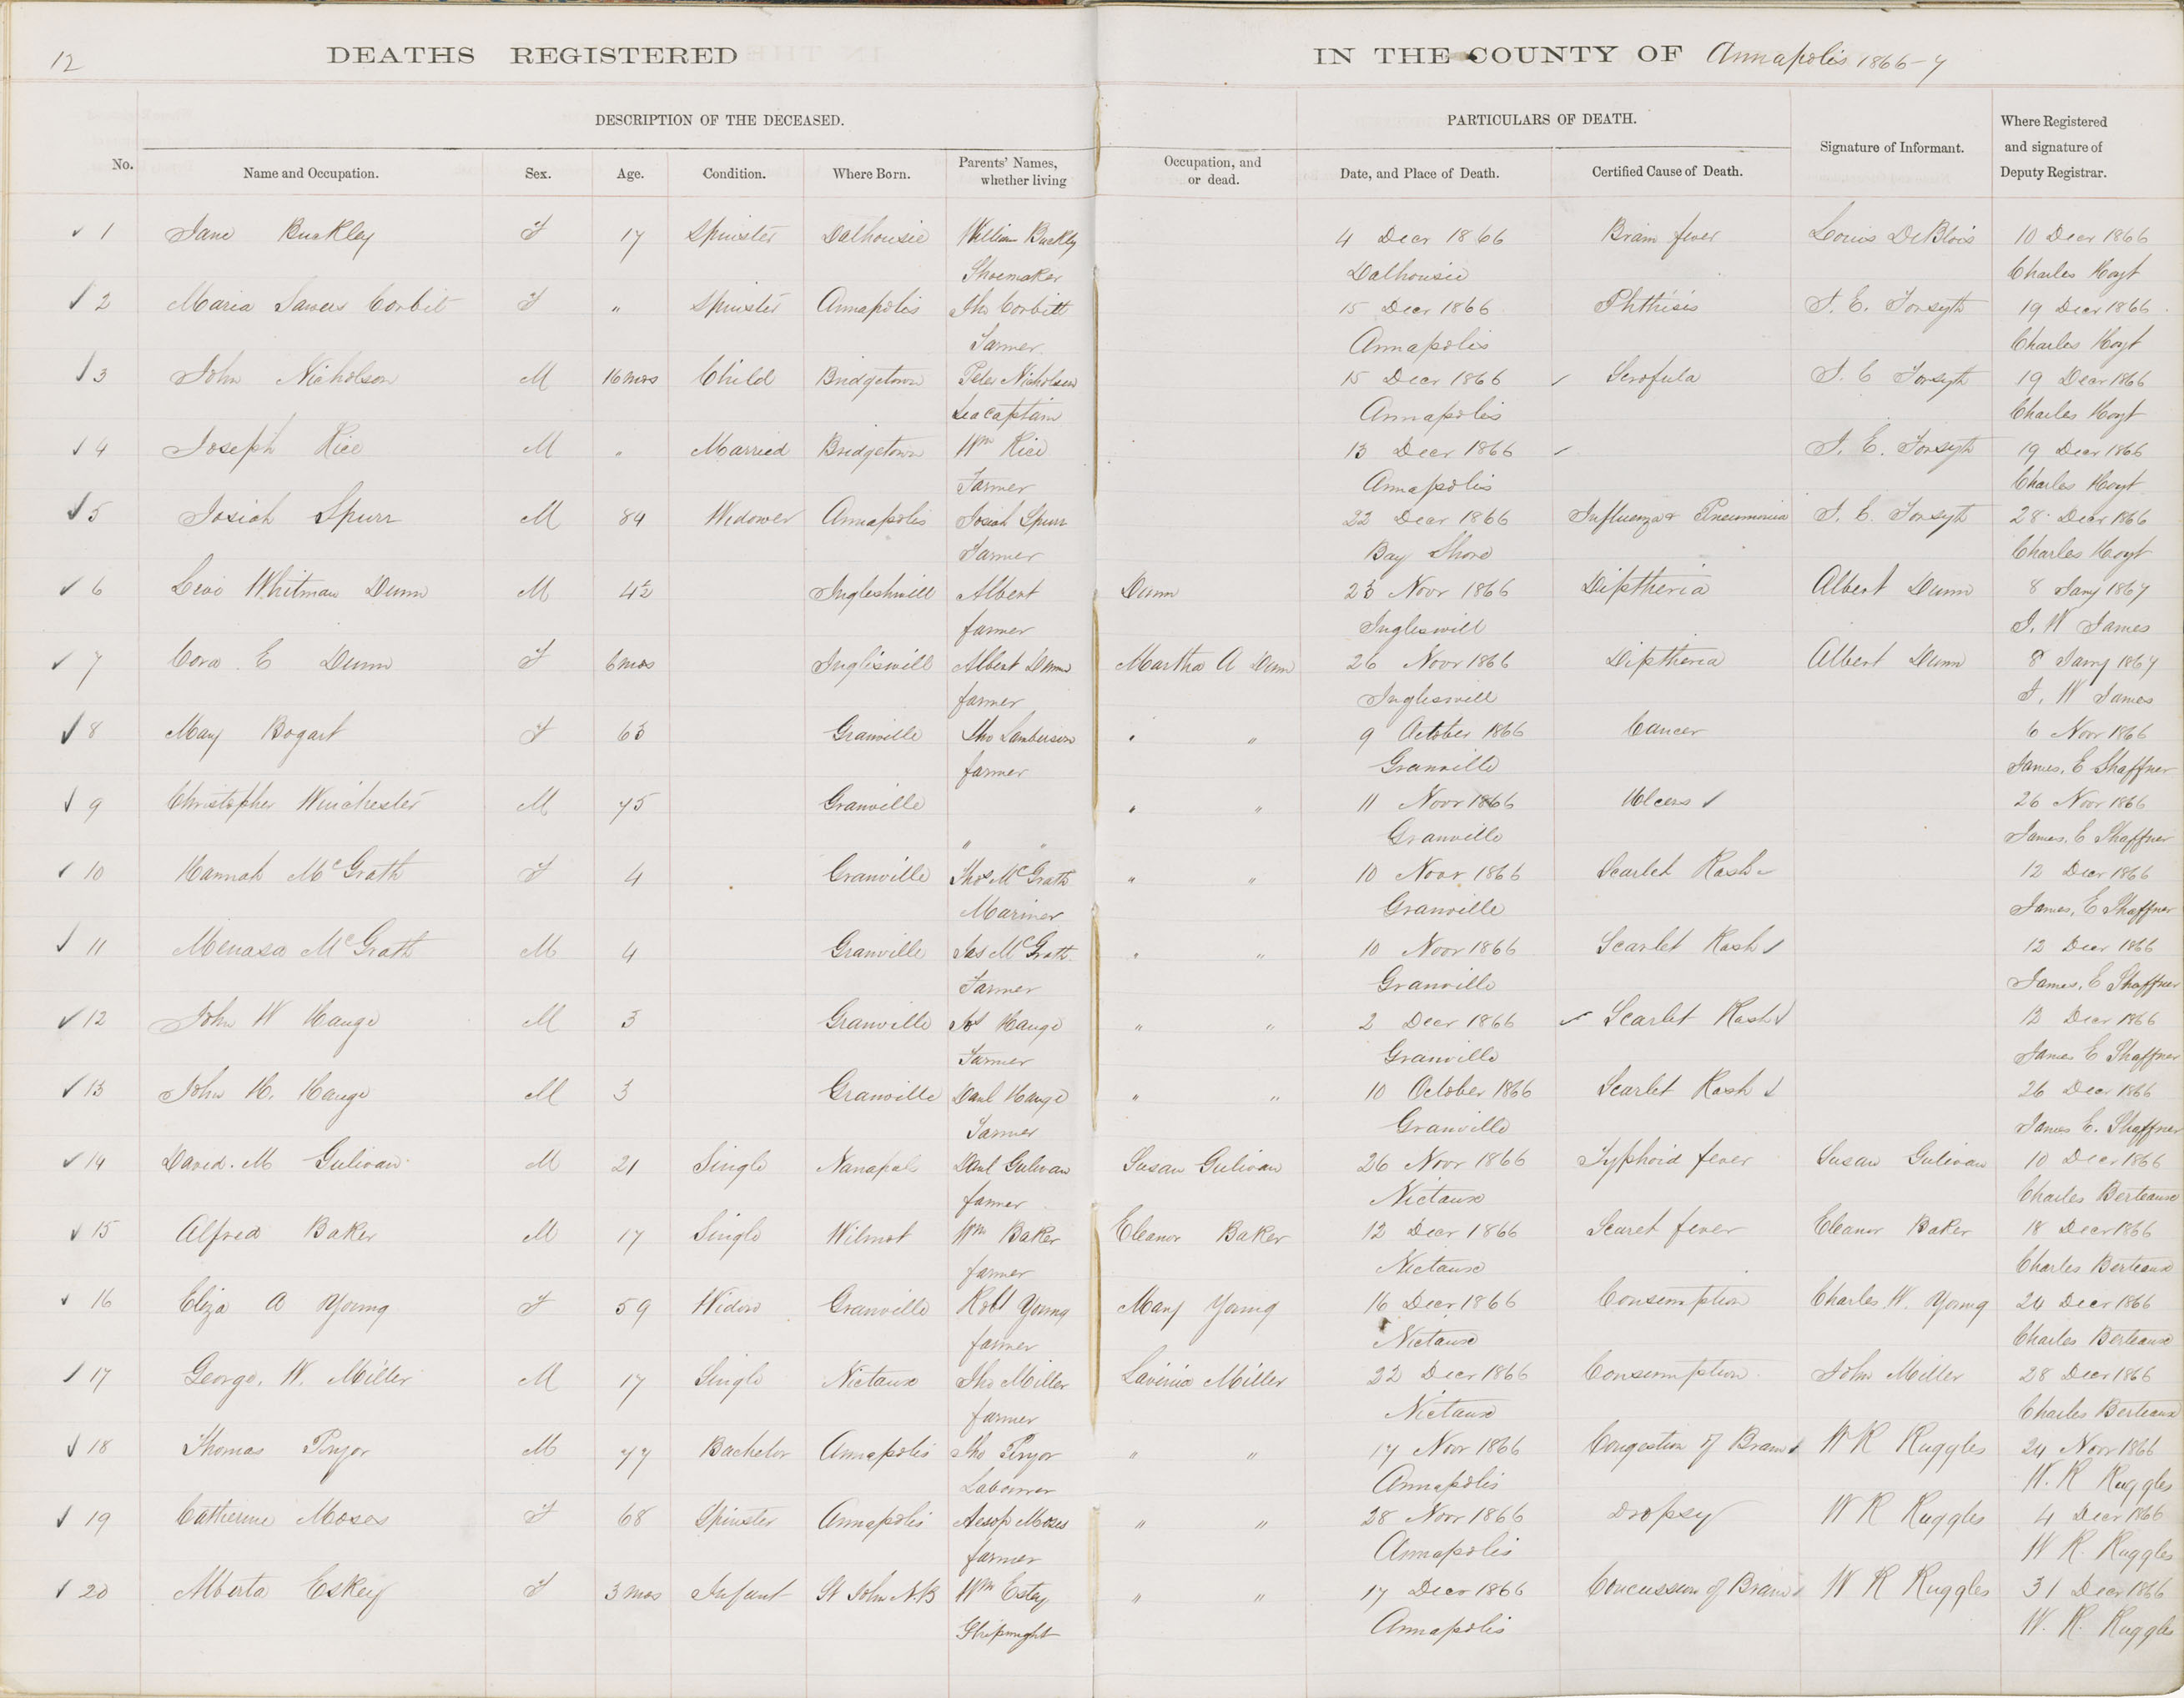 12
DEATHS REGISTERED IN THE COUNTY OF Annapolis 1866-7
DESCRIPTION OF THE DECEASED. PARTICULARS OF DEATH. Signature of Informant. Where Registered and signature of Deputy Registrar.
No. Name and Occupation. Sex. Age. Condition. Where Born. Parents' Names, whether living Occupation, and or dead. Date, and Place of Death. Certified Cause of Death.
1 Jane Buckley F 17 Spinster Dalhousie William Buckly 4 Decr 1866 Brain fever Louis DeBlois 10 Decr 1866
Shoemaker Dalhousie Charles Hoyt
2 Maria Corbit F " Spinster Annapolis Jno Corbitt 15 Decr 1866 Phthisis J. E. Forsyth 19 Decr 1866
Farmer Annapolis Charles Hoyt
3 John Nicholson M 16 mos Child Bridgetown Peter Nicholson 15 Decr 1866 Scrofula J. E Forsyth 19 Decr 1866
Sea Captain Annapolis Charles Hoyt
4 Joseph Rice M " Married Bridgetown Wm Rice 13 Decr 1866 J. E. Forsyth 19 Decr 1866
Farmer Annapolis Charles Hoyt
5 Josiah Spurr M 84 Widower Annapolis Josiah Spurr 22 Decr 1866 Influenza & Pneumonia J. E. Forsyth 28 Decr 1866
Farmer Bay Shore Charles Hoyt
6 Levi Whitman Dunn M 4½ Ingleshvill Albert Dunn 23 Novr 1866 Diptheria Albert Dunn 8 Jany 1867
farmer Ingleswill J. W James
7 Cora E Dunn F 6 mos Ingliswill Albert Dunn Martha A Dunn 26 Novr 1866 Diptheria Albert Dunn 8 Jany 1867
farmer Ingleswill J. W James
8 Mary Bogart F 63 Granville Jno Lamberson " " 9 October 1866 Cancer 6 Novr 1866
farmer Granville James, E Shaffner
9 Christopher Winchester M 75 Granville " " 11 Novr 1866 Ulcers 26 Novr 1866
" " Granville James, E Shaffner
10 Hannah McGrath F 4 Granville Thos McGrath " " 10 Novr 1866 Scarlet Rash 12 Decr 1866
Mariner Granville James, E Shaffner
11 Menasa McGrath M 4 Granville Jas McGrath " " 10 Novr 1866 Scarlet Rash 12 Decr 1866
Farmer Granville James, E Shaffner
12 John W Hauge M 3 Granville Hauge " " 2 Decr 1866 Scarlet Rash 12 Decr 1866
Farmer Granville James E Shaffner
13 John H. Hauge M 3 Granville Danl Hauge " " 10 October 1866 Scarlet Rash 26 Decr 1866
Farmer Granville James E. Shaffner
14 David. M Gulivan M 21 Single Danl Gulivan Susan Gulivan 26 Novr 1866 Typhoid fever Susan Gulivan 10 Decr 1866
farmer Nictaux Charles Berteaux
15 Alfred Baker M 17 Single Wilmot Wm Baker Eleanor Baker 12 Decr 1866 Scaret fever Eleanor Baker 18 Decr 1866
farmer Nictaux Charles Berteaux
16 Eliza A Young F 59 Widow Granville Robt Young Mary Young 16 Decr 1866 Consumption Charles W. Young 24 Decr 1866
farmer Nictaux Charles Berteaux
17 George. W. Miller M 17 Single Nictaux Jno Miller Lavinia Miller 22 Decr 1866 Consumption John Miller 28 Decr 1866
farmer Nictaux Charles Berteaux
18 Thomas Pryor M 77 Bachelor Annapolis Jno Pryor " " 17 Novr 1866 Congestion of Brain W R Ruggles 24 Novr 1866
Labourer Annapolis W. R Ruggles
19 Catherine Moses F 68 Spinster Annapolis Aesop Moses " " 28 Novr 1866 Dropsy W R Ruggles 4 Decr 1866
farmer Annapolis W R. Ruggles
20 Alberta Eskey F 3 mos Infant St John N.B Wm Estey " " 17 Decr 1866 Concussion of Brain W R Ruggles 31 Decr 1866
Shipwright Annapolis W. R. Ruggles